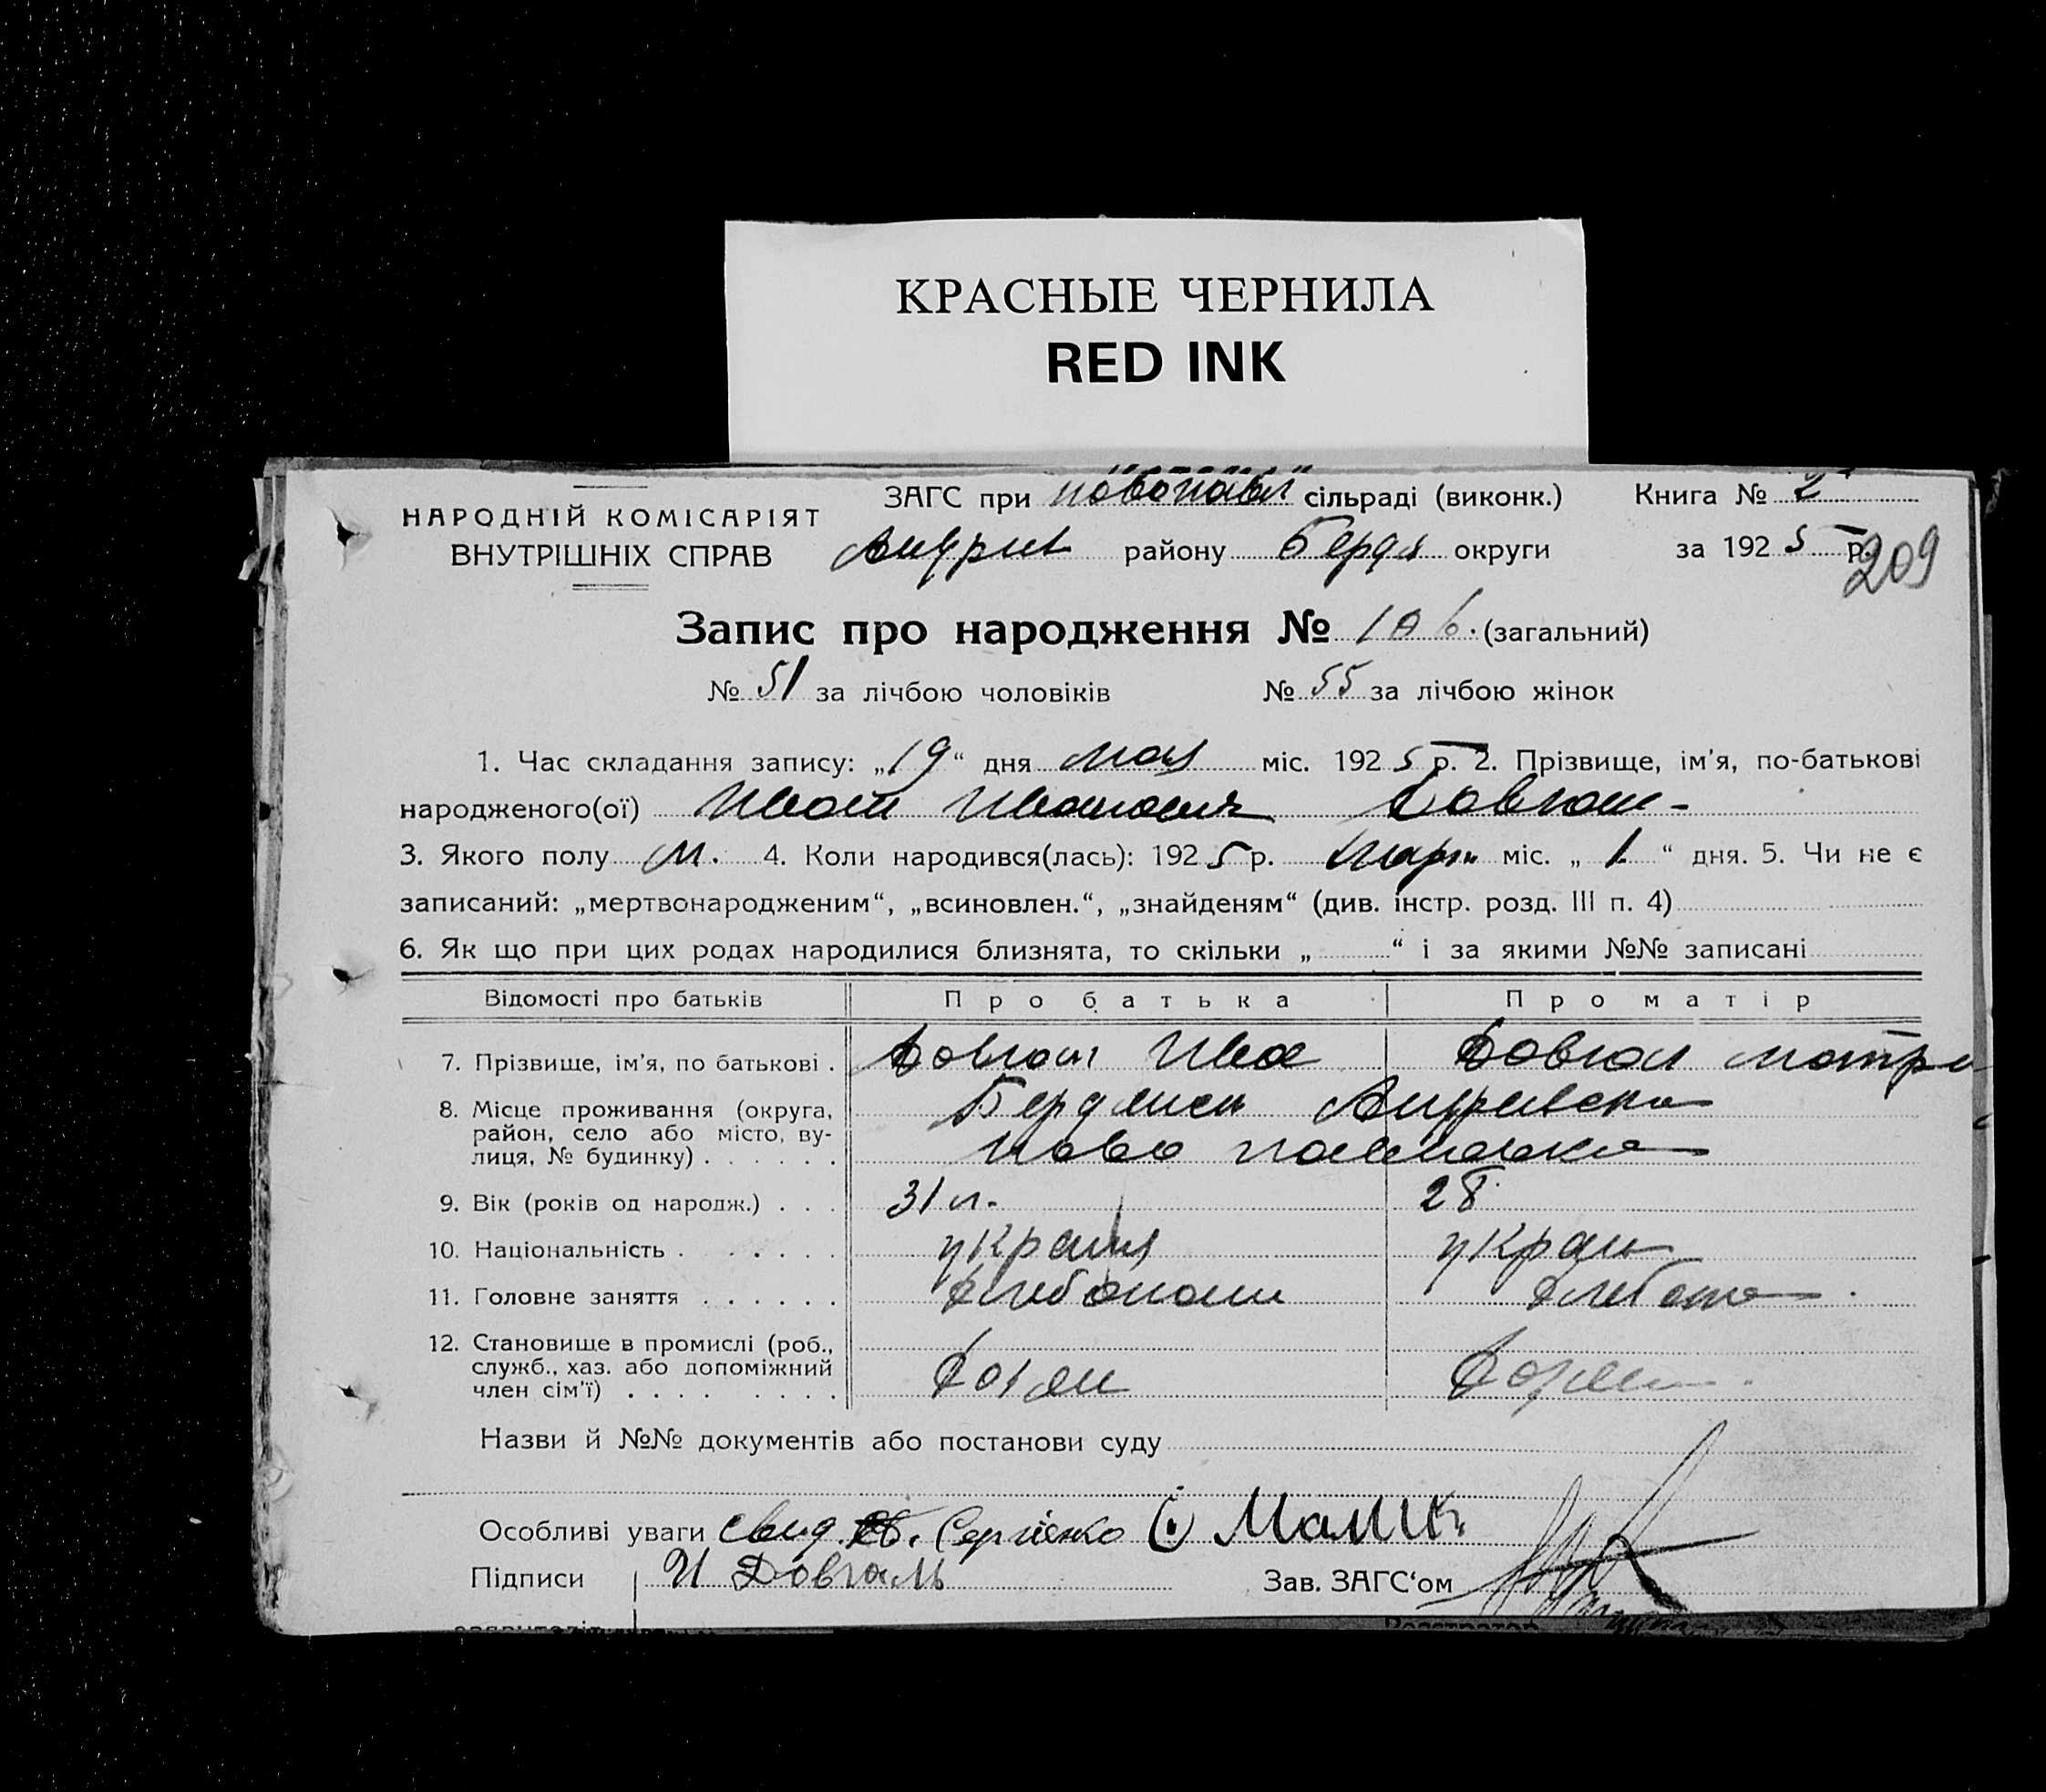 КРАСНЫЕ ЧЕРНИЛА
RED INK
НАРОДНІЙ КОМІСАРІЯТ
ВНУТРІШНІХ СПРАВ
ЗАГС при новопавл сільраді (виконк.) Книга № 2
району Бердя округи за 1925 р.
209
Запис про народження № 106. (загальний)
№ 51 за лічбою чоловіків № 55 за лічбою жінок
1. Час складання запису: „19“ дня мая міс. 1925 р. 2. Прізвище, ім'я, по-батькові
народженого(ої) Иван Иванович Довгаль
3. Якого полу м. 4. Коли народився(лась): 1925 р. март міс. „1“ дня. 5. Чи не є
записаний: „мертвонародженим“, „всиновлен.“, „знайденям“ (див. інстр. розд. III п. 4)
6. Як що при цих родах народилися близнята, то скільки „ “ і за якими №№ записані
Відомості про батьків Про батька Про матір
7. Прізвище, ім'я, по батькові . Довгаль Ива Довгал матр
8. Місце проживання (округа,
район, село або місто, ву-
лиця, № будинку) . . . . . .
Бердянск
Ново павловка
9. Вік (років од народж.) . . . 31 л. 28
10. Національність . . . . . . украин украин
11. Головне заняття . . . . . .
12. Становище в промислі (роб.,
служб., хаз. або допоміжний
член сім'ї) . . . . . . . .
Назви й №№ документів або постанови суду
Особливі уваги свид. Сергіенко
Підписи И Довгаль Зав. ЗАГС'ом
заявителів
Реєстратор